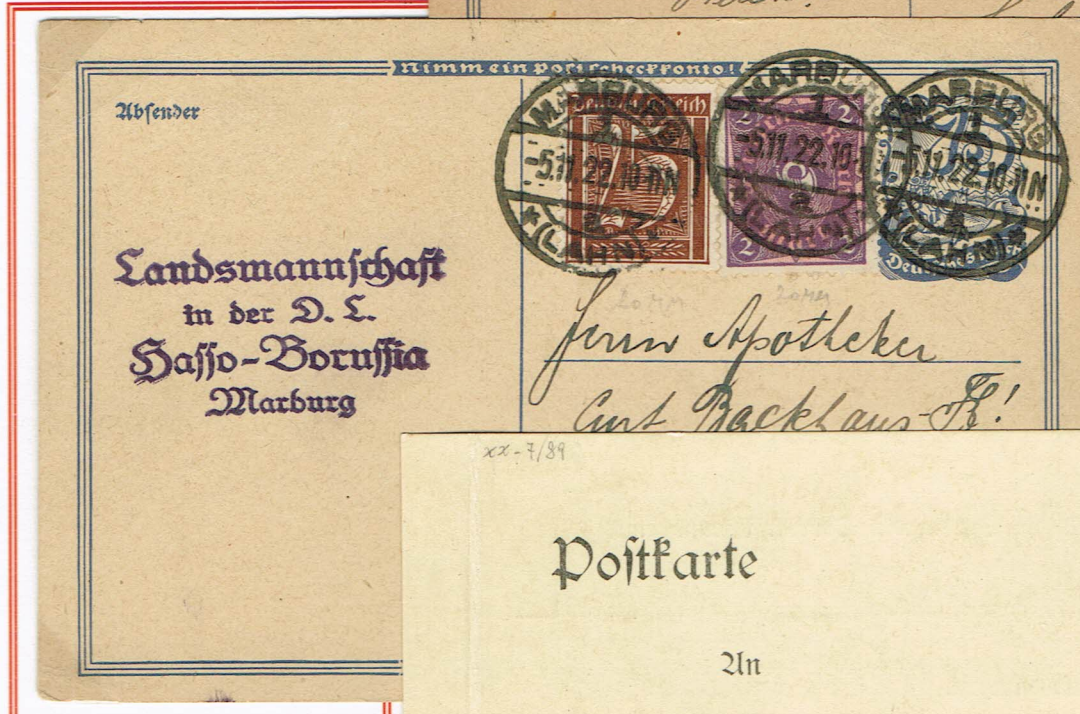 Nimm ein Postscheckkonto!
Absender
Deutsches Reich
75
MARBURG
1
-5.11.22.10-11N
*(LAHN)*
2
MARBURG
1
-5.11.22.10-
a
*(LAHN)
2
2
MARBURG
1
-5.11.22.10-11N
*(LAHN)*
75
Landsmannschaft
in der D. L.
Hasso-Borussia
Marburg
Herrn Apotheker
Curt Backhaus-
xx-7/89
Postkarte
An